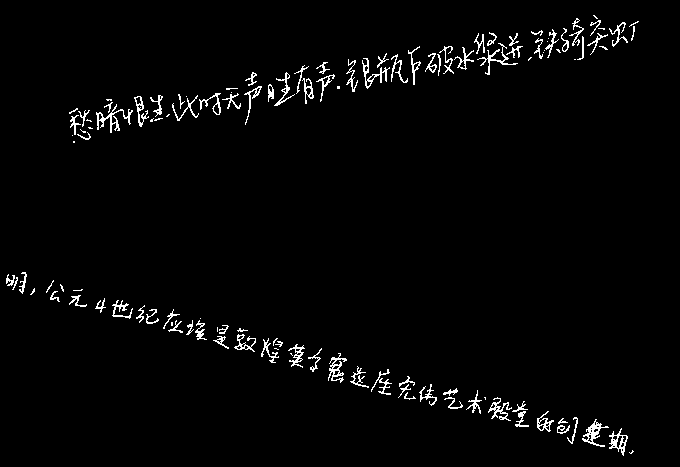 愁暗恨生,此时无声胜有声.银瓶乍破水浆迸,铁骑突出
明,公元4世纪应该是敦煌莫高窟这座宏伟艺术殿堂的创建期,